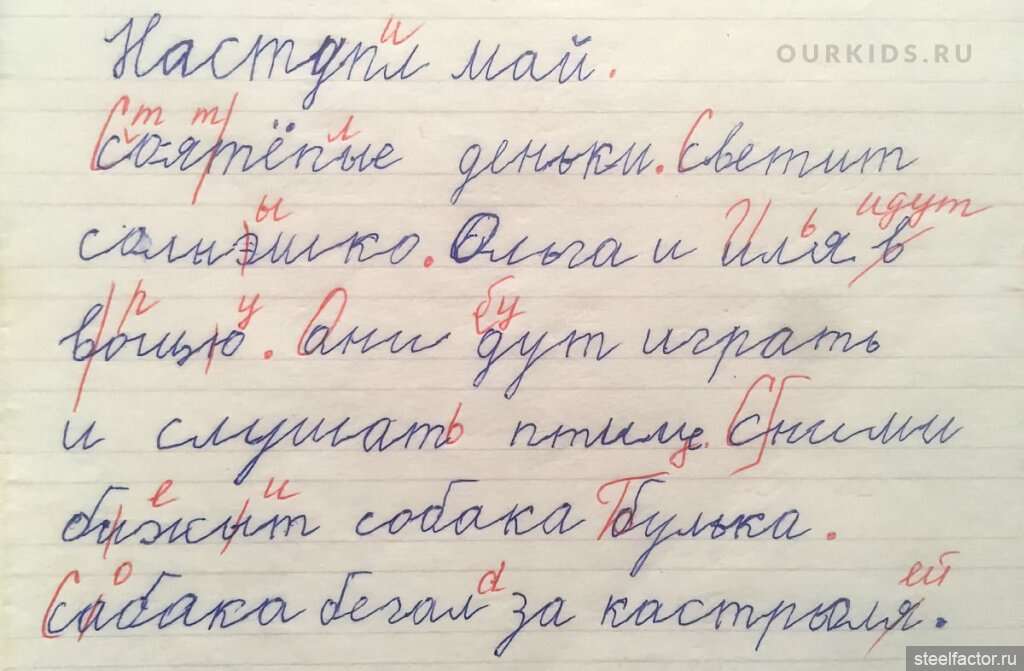 OURKIDS.RU
Наступил май.
Стоят тёплые деньки. Светит
солнышко. Ольга и Илья идут
в рощу. Они будут играть
и слушать птиц. С ними
бежит собака Булька.
Собака бегала за кастрюлей.
steelfactor.ru